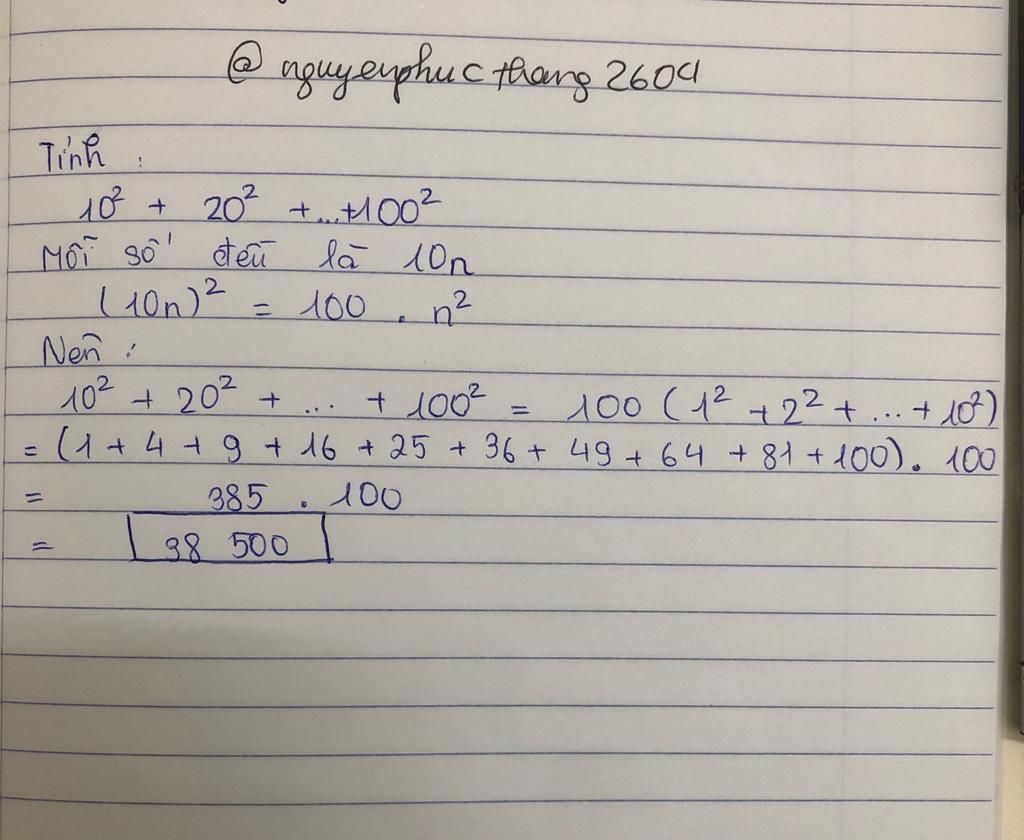 @nguyenphucthang2604
Tính :
10² + 20² + ... + 100²
Mỗi số đều là 10n
(10n)² = 100 . n²
Nên :
10² + 20² + ... + 100² = 100 (1² + 2² + ... + 10²)
= (1 + 4 + 9 + 16 + 25 + 36 + 49 + 64 + 81 + 100) . 100
= 385 . 100
= 38 500